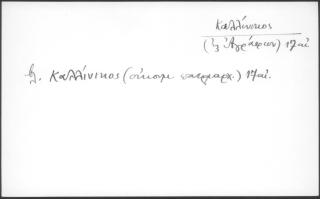 Καλλίνικος
(ἐξ Ἀγράφων) 17 αἰ
βλ. Καλλίνικος (οἰκουμ. πατριαρχ.) 17 αἰ.